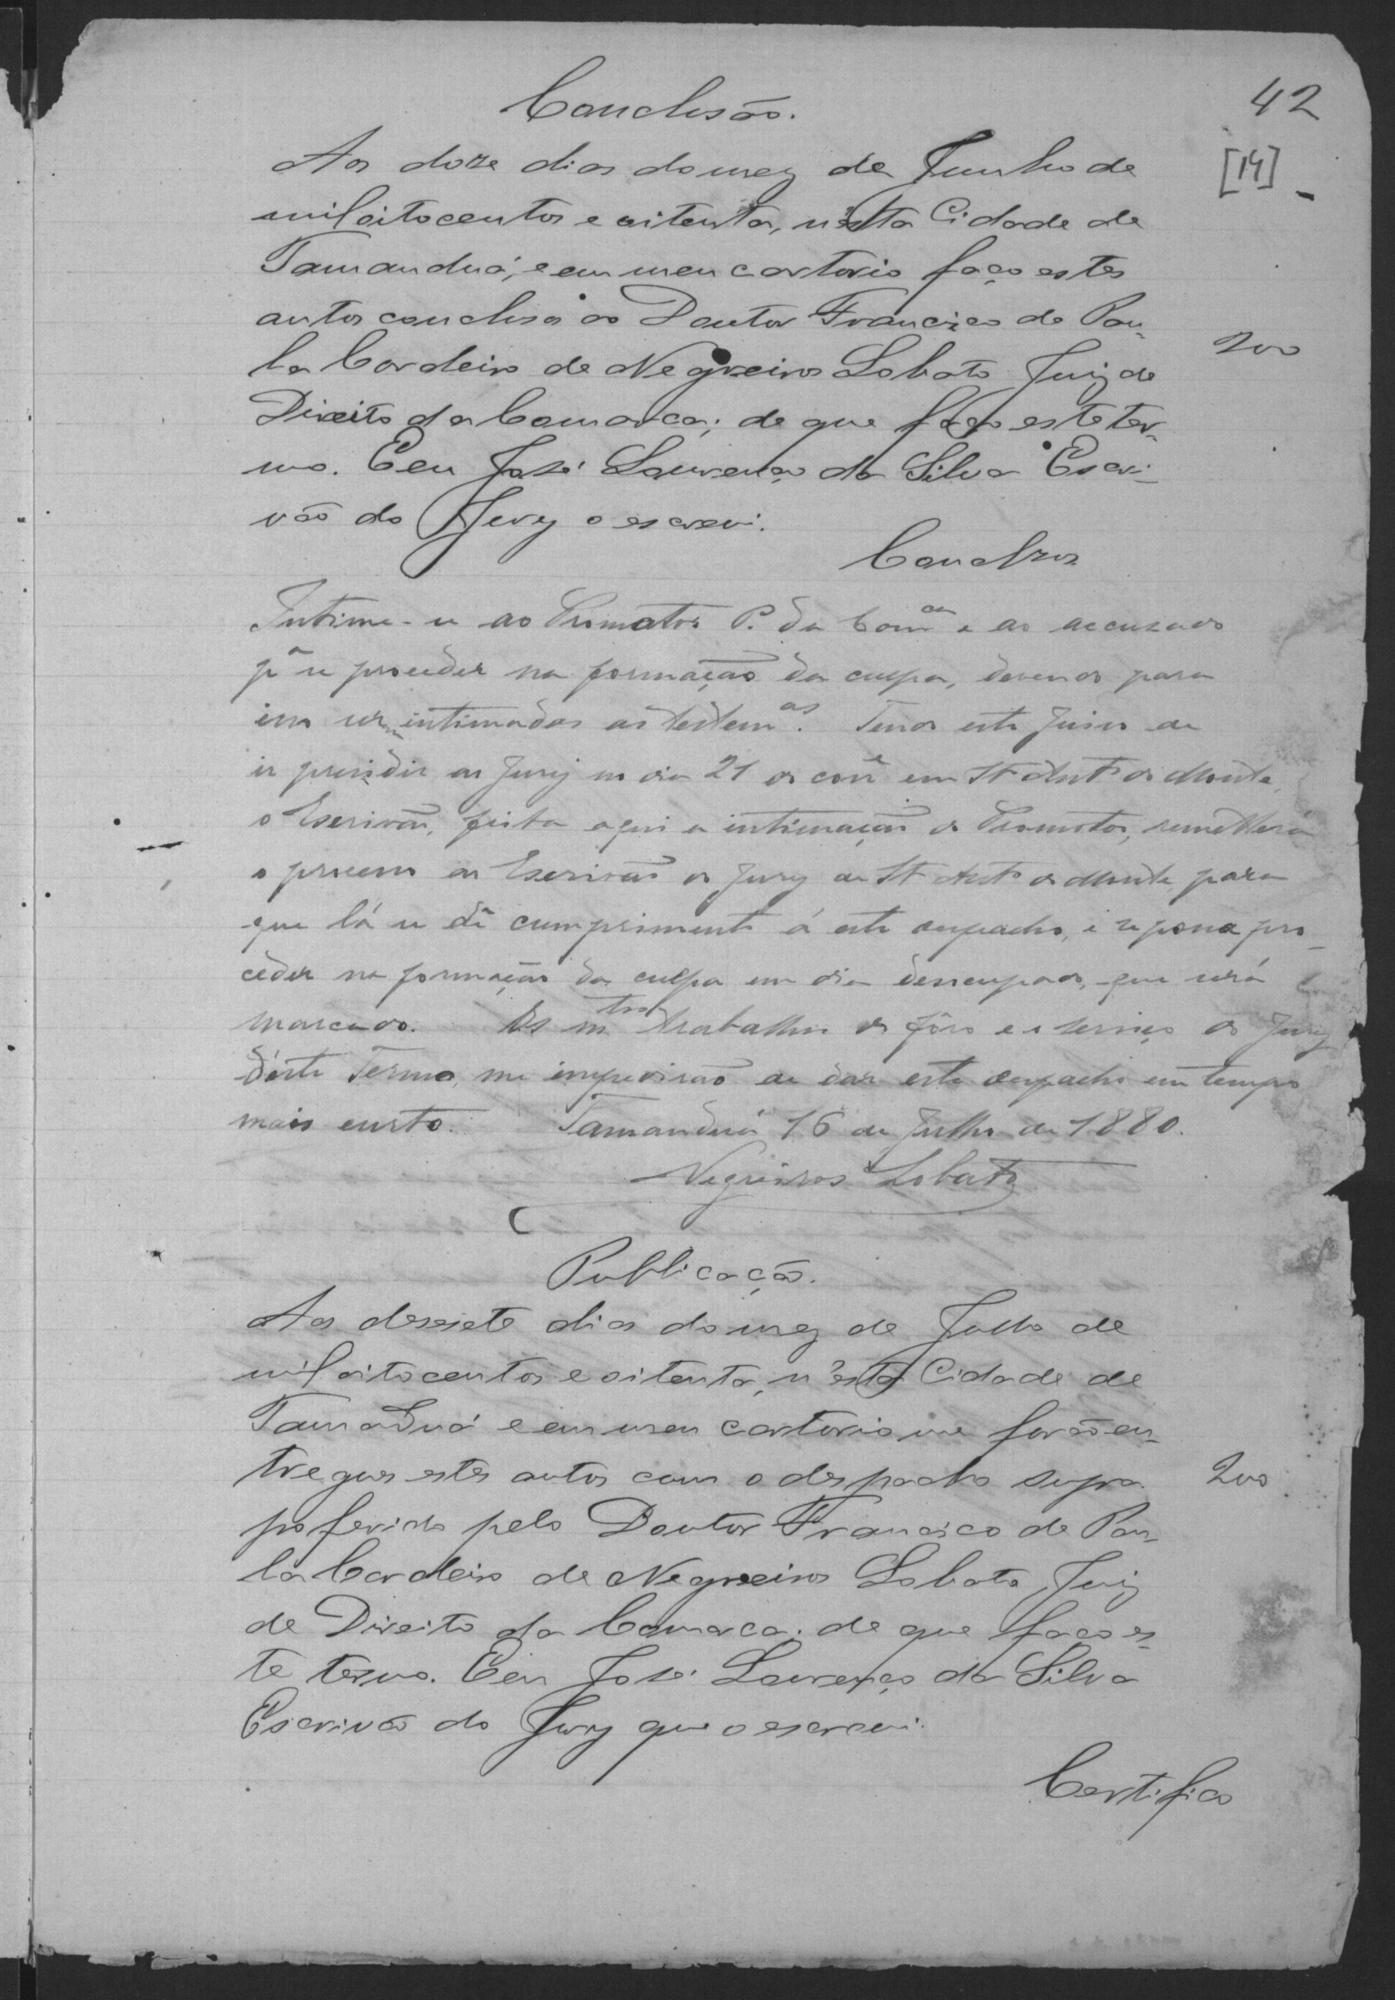 42
[14]
Conclusão.
Aos doze dias do mez de Junho de
mil oitocentos e oitenta, n'esta Cidade de
Tamanduá, e em meu cartorio faço estes
autos conclusos ao Doutor Francisco de Pau-
la Cordeiro de Negreiros Lobato Juiz de
200
Direito da Comarca; de que faço este ter-
mo. Eeu José Lourenço da Silva Escri-
vão do Jury o escrevi.
Conclzos
Intime-se ao Promotor P. da Com.ca e ao accusado
pª se proceder na formação da culpa, devendo para
isso serem intimadas as testem.as. Tendo este Juiso de
ir presidir ao Jury no dia 21 do corrê em Stº Antº do Monte,
o Escrivão, feita aqui a intimação do Promotor, remetterá
o processo ao Escrivão do Jury de Stº Antº do Monte para
que lá se dê cumprimento á este despacho, e se possa pro-
ceder na formação da culpa em dia desocupado, que será
marcado. Os mtos trabalhos do fôro e o serviço do Jury
déste Termo, me impedirão de dar este despacho em tempo
mais curto. Tamanduá 16 de Julho de 1880.
Negreiros Lobato
Publicação.
Aos desesete dias do mez de Julho de
mil oitocentos e oitenta, n'esta Cidade de
Tamaduá e em meu cartorio me forão en-
tregues estes autos com o despacho supra
200
proferido pelo Doutor Francisco de Pau-
la Cordeiro de Negreiros Lobato, Juiz
de Direito da Comarca; de que faço es-
te termo. Eeu José Lourenço da Silva
Escrivão do Jury que o escrevi.
Certifico